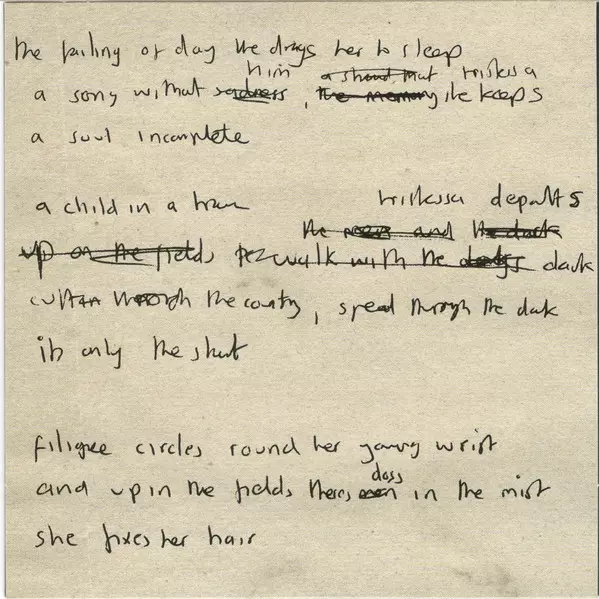 the failing of day the drugs her to sleep
him a shroud that triskissa
a song without sadness, the memory it keeps
a soul incomplete
a child in a trance triskissa departs
the and the dark
up on the fields walk with the dogs dark
through the country, speed through the dark
its only the start
filigree circles round her young wrist
dogs
and up in the fields theres men in the mist
she fixes her hair